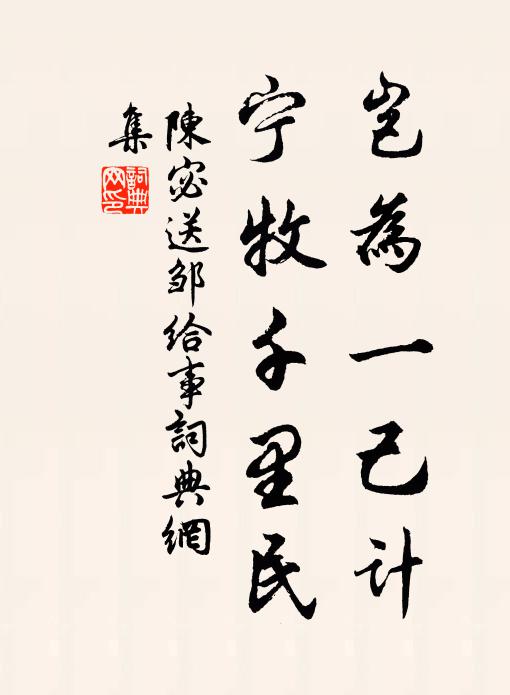 岂為一己计
宁牧千里民
陳宓送邹给事詞典網
集
詞典
网印